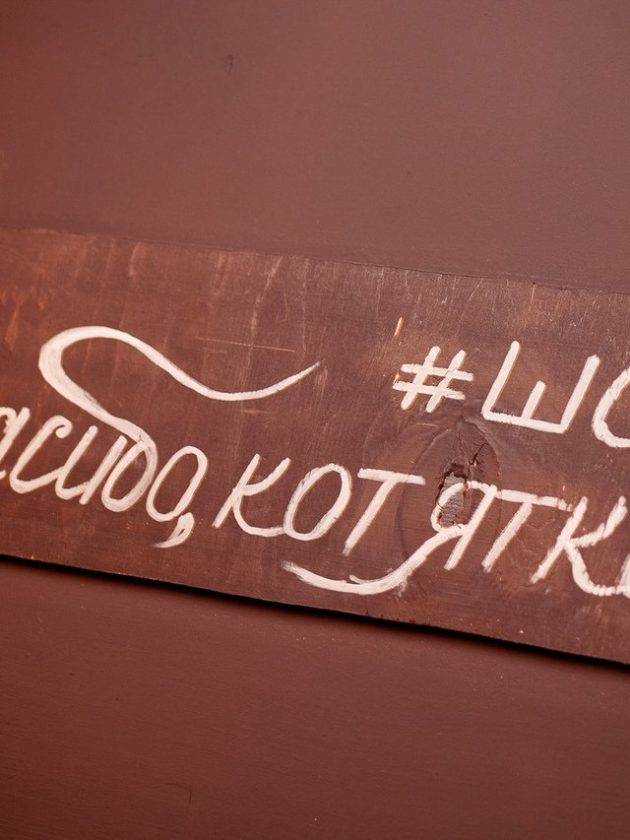 #Ш
асибо, котятки